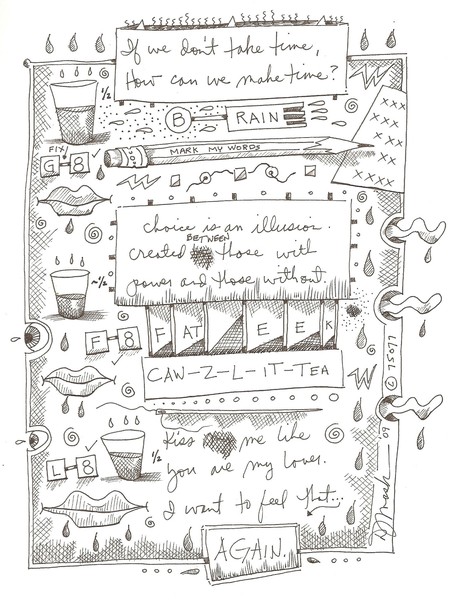 If we don't take time,
How can we make time?
1/2
B RAIN
xxx
xx
xx
xx
xx
xxxx
FIX
G-8
MARK MY WORDS
choice is an illusion
BETWEEN
created those with
power and those without.
~1/2
F-8
FATEEEK
CAW-Z-L-IT-TEA
© 75077
Kiss me like
you are my lover.
1/2
L-8
I want to feel that...
AGAIN.
09